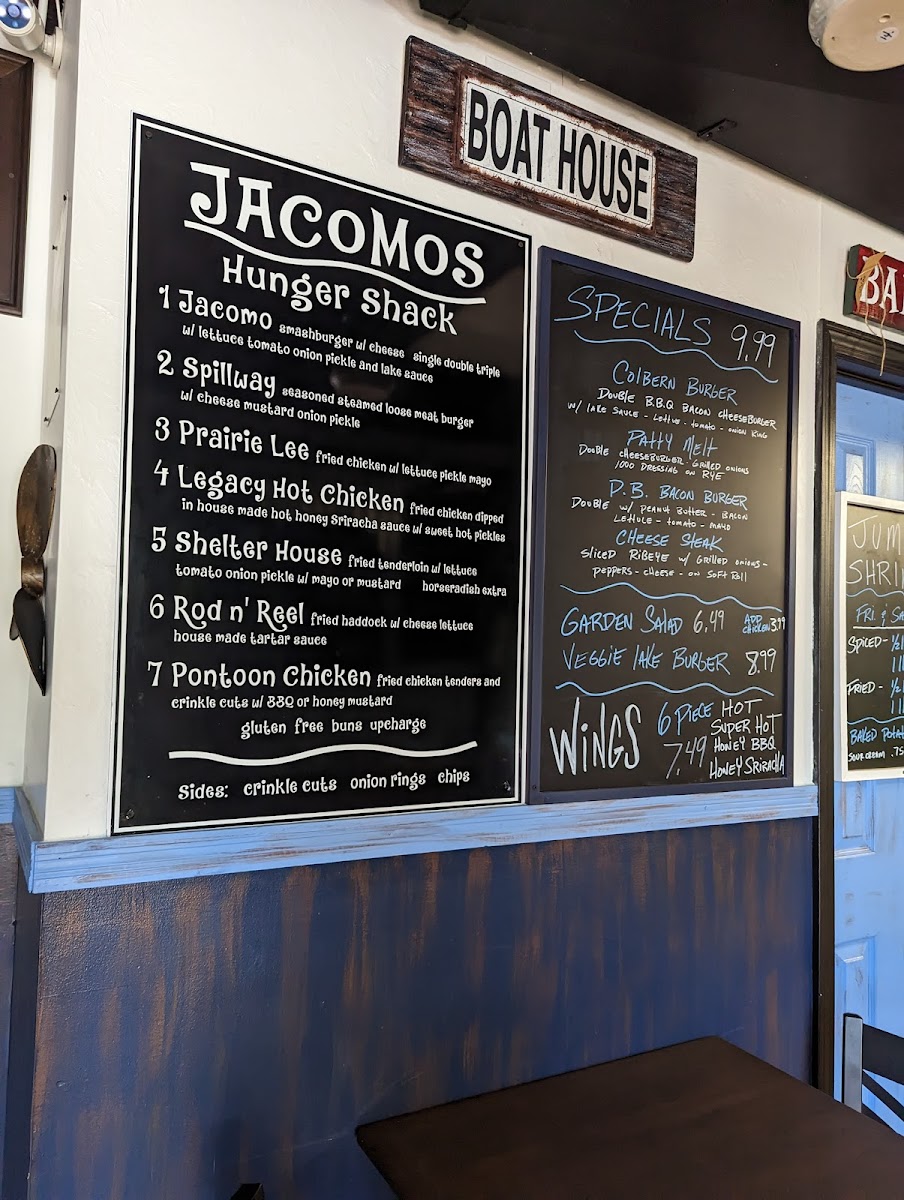 BOAT HOUSE
JACOMOS
Hunger Shack
1 Jacomo smashburger w/ cheese single double triple
w/ lettuce tomato onion pickle and lake sauce
2 Spillway seasoned steamed loose meat burger
w/ cheese mustard onion pickle
3 Prairie Lee fried chicken w/ lettuce pickle mayo
4 Legacy Hot Chicken fried chicken dipped
in house made hot honey Sriracha sauce w/ sweet hot pickles
5 Shelter House fried tenderloin w/ lettuce
tomato onion pickle w/ mayo or mustard horseradish extra
6 Rod n' Reel fried haddock w/ cheese lettuce
house made tartar sauce
7 Pontoon Chicken fried chicken tenders and
crinkle cuts w/ BBQ or honey mustard
gluten free buns upcharge
Sides: crinkle cuts onion rings chips
SPECIALS 9.99
COLBERN BURGER
DOUBLE B.B.Q BACON CHEESEBURGER
W/ LAKE SAUCE - LETTUE - TOMATO - ONION RING
PATTY MELT
DOUBLE CHEESEBURGER - GRILLED ONIONS
1000 DRESSING ON RYE
P.B. BACON BURGER
DOUBLE W/ PEANUT BUTTER - BACON
LETTUCE - TOMATO - MAYO
CHEESE STEAK
SLICED RIBEYE W/ GRILLED ONIONS -
PEPPERS - CHEESE - ON SOFT ROLL
GARDEN SALAD 6.49 ADD CHICKEN 3.99
VEGGIE LAKE BURGER 8.99
WINGS 6 PIECE 7.49
HOT
SUPER HOT
HONEY BBQ
HONEY SRIRACHA
BA
JUM
SHRI
FRI. & SA
SPICED - 1/2
1
FRIED - 1/2
1
BAKED POTA
SOUR CREAM .75
14